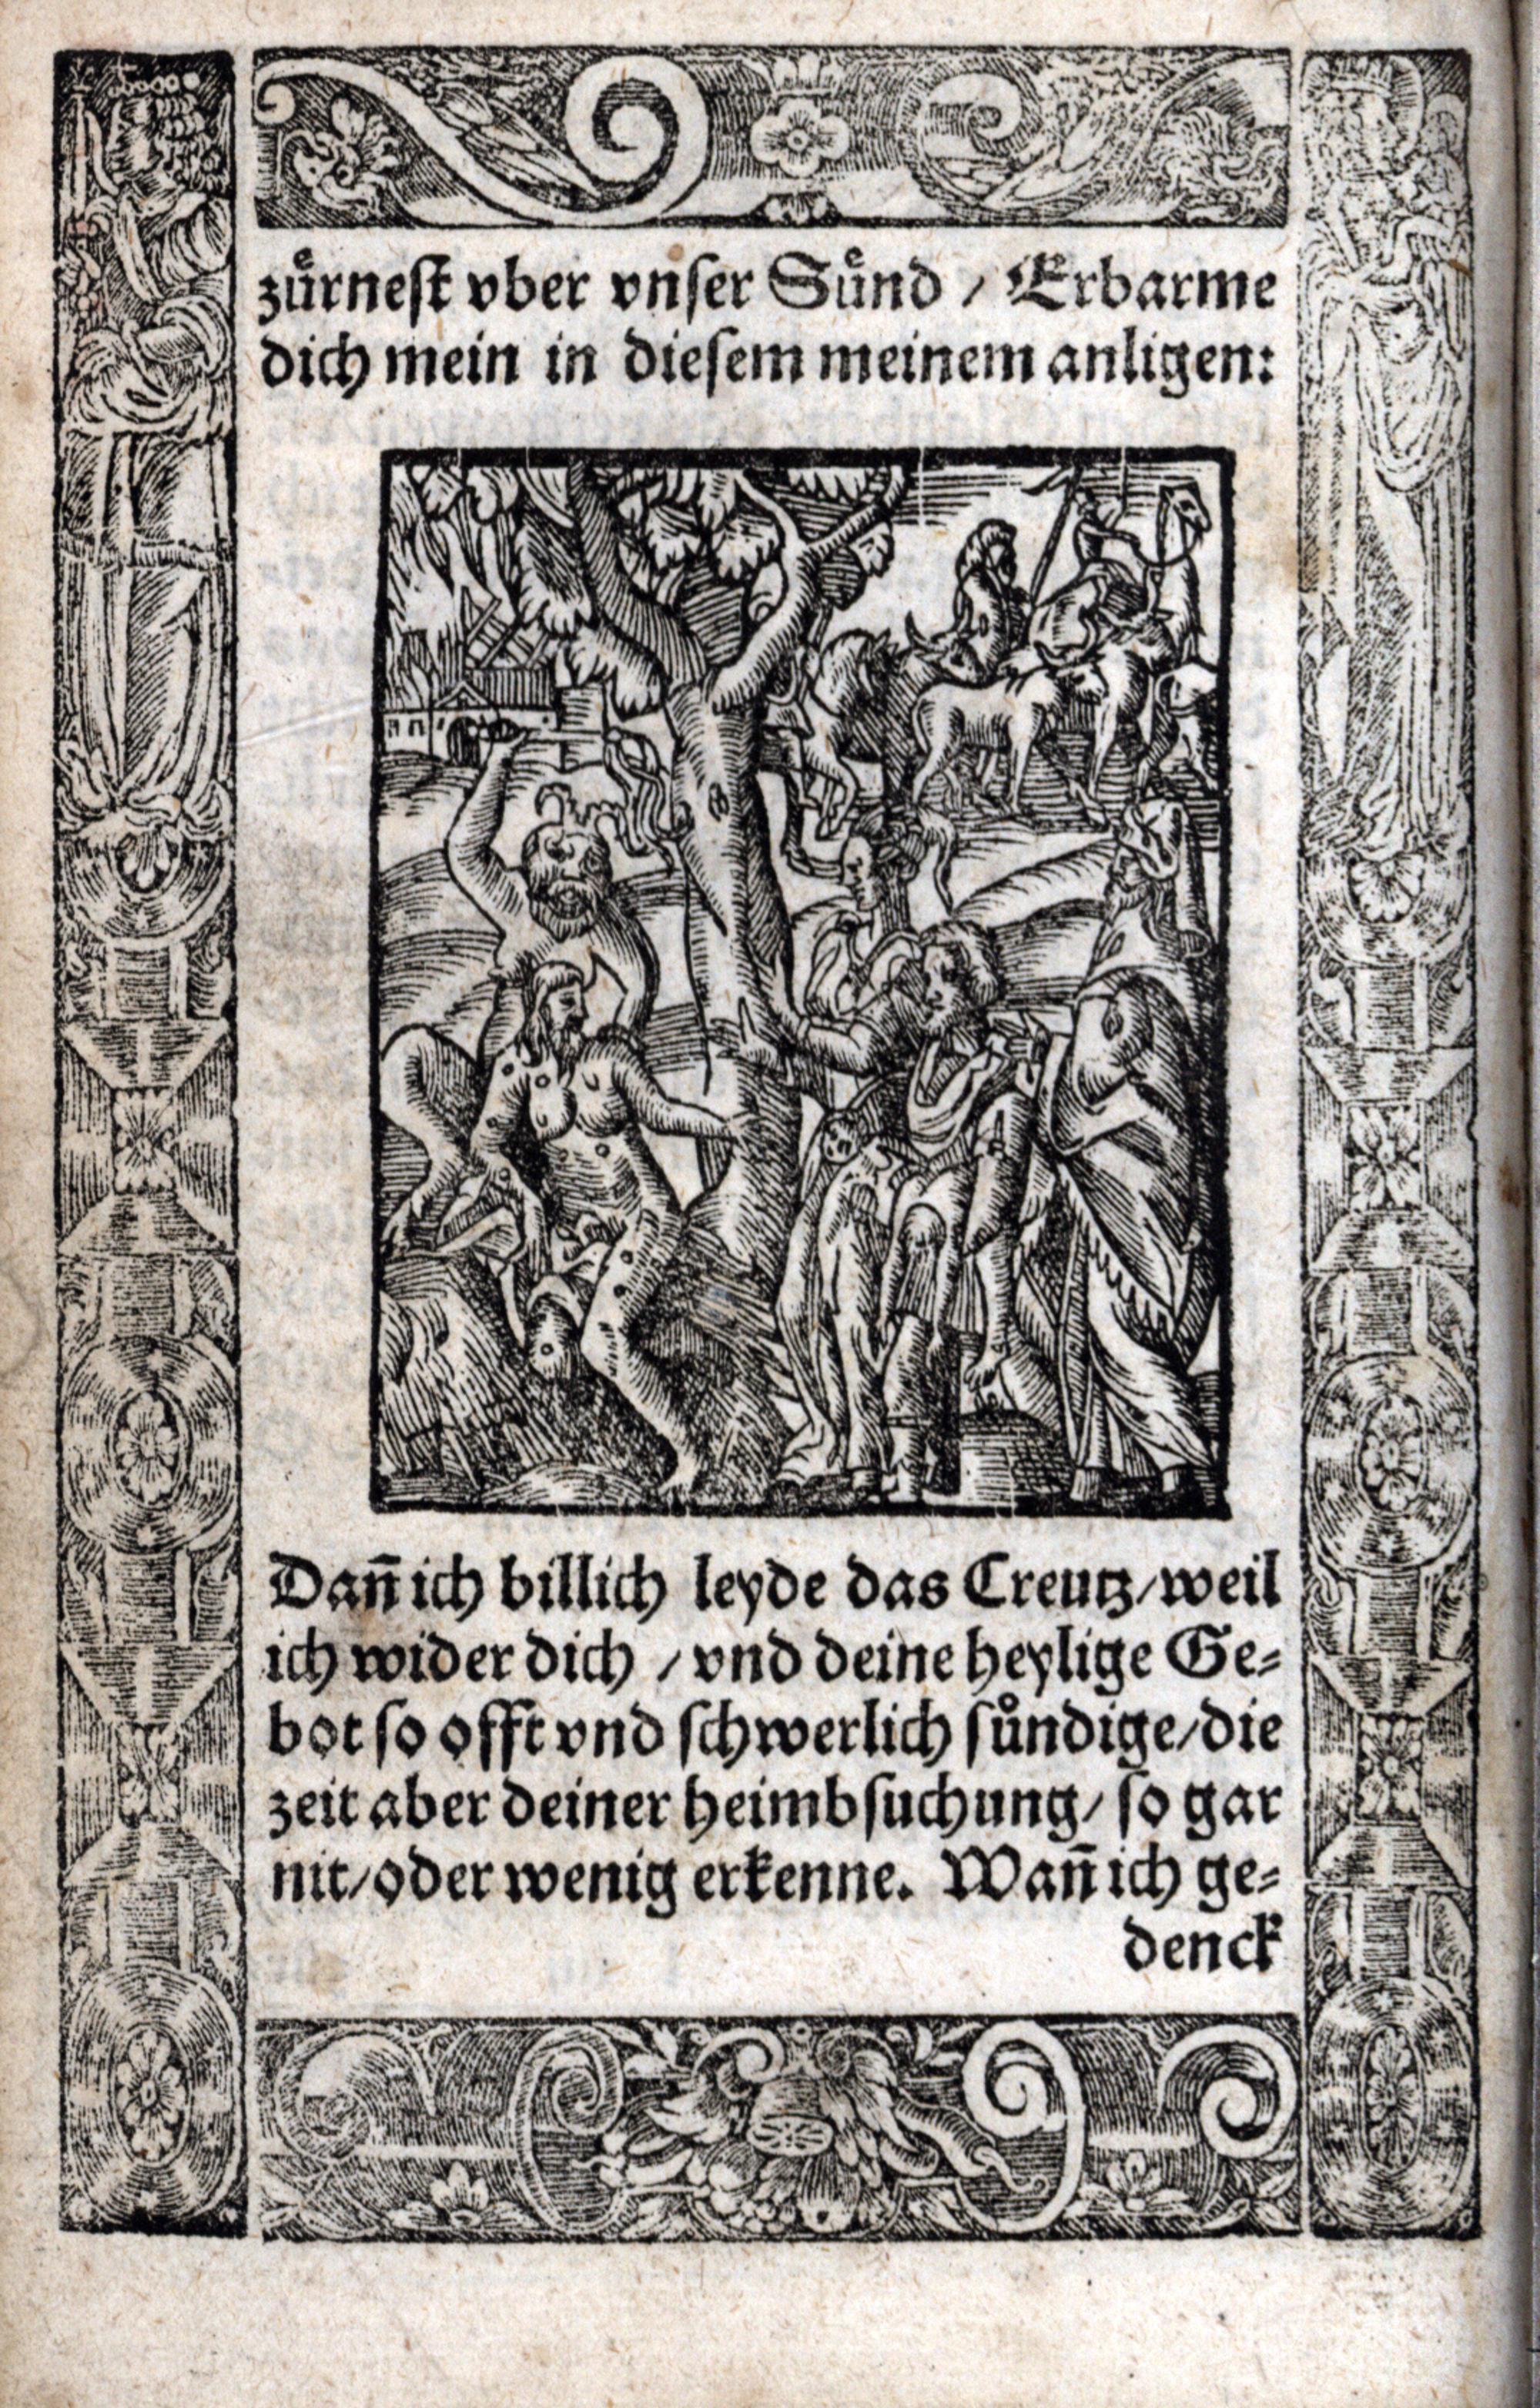 zuͤrnest vber vnser Suͤnd / Erbarme
dich mein in diesem meinem anligen:
Dañ ich billich leyde das Creutz/weil
ich wider dich / vnd deine heylige Ge-
bot so offt vnd schwerlich suͤndige/die
zeit aber deiner heimbsuchung/ so gar
nit/oder wenig erkenne. Wañ ich ge-
denck